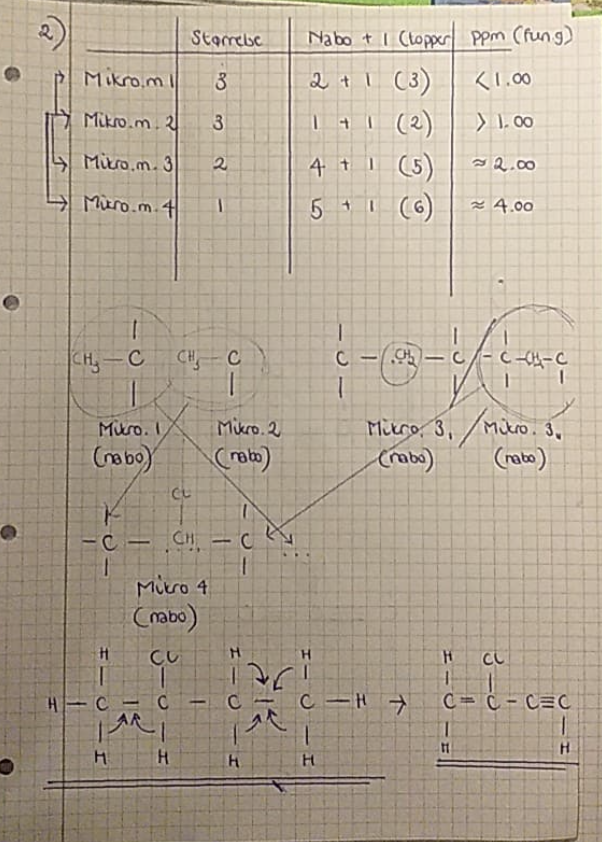 2)
Størrelse Nabo + 1 (topper) ppm (fun g)
Mikro.m 1 3 2 + 1 (3) <1.00
Mikro.m. 2 3 1 + 1 (2) >1.00
Mikro.m. 3 2 4 + 1 (5) ≈ 2.00
Mikro.m. 4 1 5 + 1 (6) ≈ 4.00
CH₃ — C CH₃ — C C — CH₂ — C — C — CH₂ — C
Mikro. 1 Mikro. 2 Mikro. 3. / Mikro. 3.
(nabo) (nabo) (nabo) (nabo)
Cl
— C — CH — C ...
Mikro 4
(nabo)
H Cl H H H Cl
H — C — C — C — C — H → C = C - C ≡ C
H H H H H H